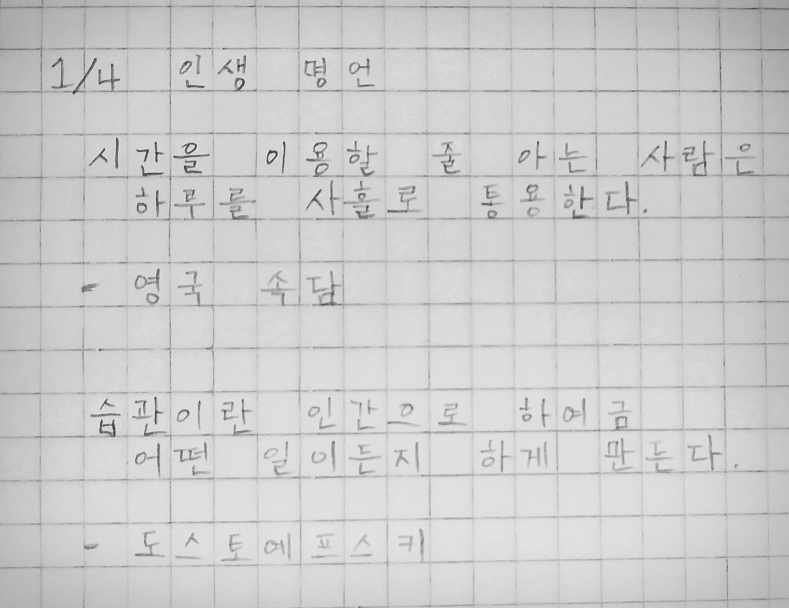 1/4 인생 명언
시간을 이용할 줄 아는 사람은
하루를 사흘로 통용한다.
- 영국 속담
습관이란 인간으로 하여금
어떤 일이든지 하게 만든다.
- 도스토예프스키